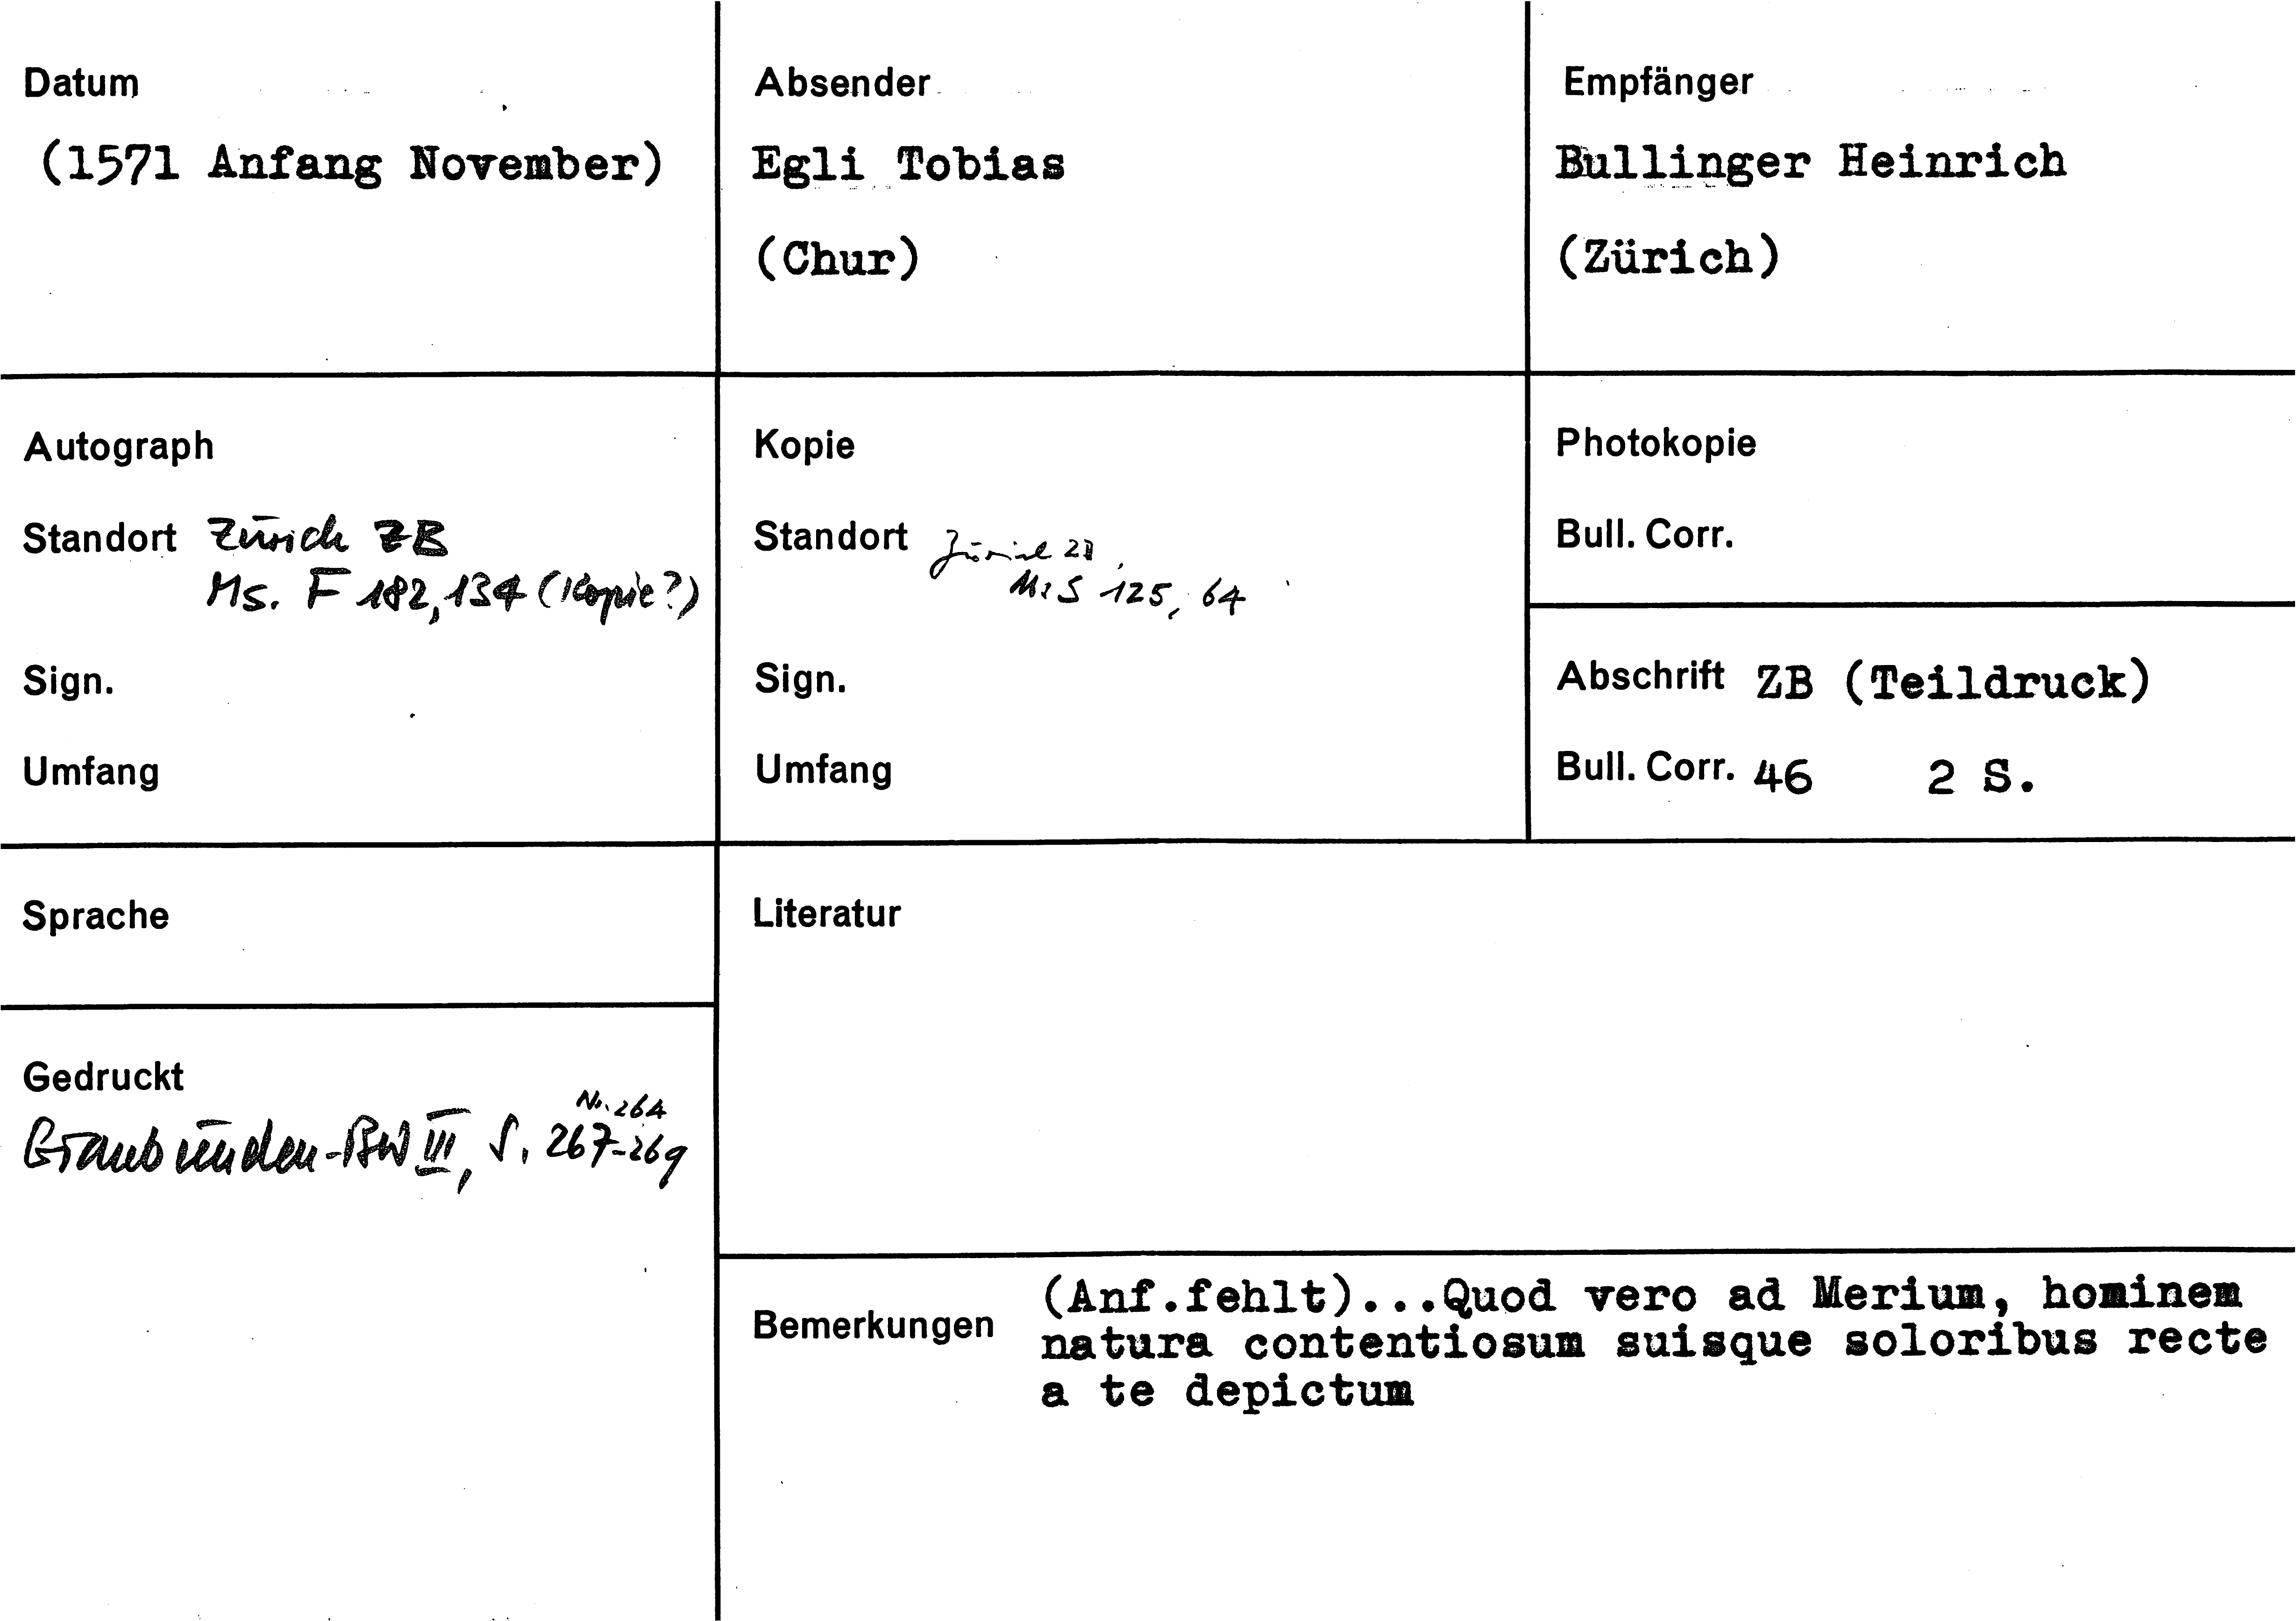 Datum
(1571 Anfang November)
Absender
Egli Tobias
(Chur)
Empfänger
Bullinger Heinrich
(Zürich)
Autograph
Standort Zürich ZB
Ms. F 182, 134 (Kopie?)
Sign.
Umfang
Kopie
Standort Zürich ZB,
Ms S 125, 64
Sign.
Umfang
Photokopie
Bull. Corr.
Abschrift ZB (Teildruck)
Bull. Corr. 46 2 S.
Sprache
Gedruckt
Nr. 264
Graubünden-BW III, S. 267-269
Literatur
Bemerkungen
(Anf.fehlt)...Quod vero ad Merium, hominem
natura contentiosum suisque soloribus recte
a te depictum